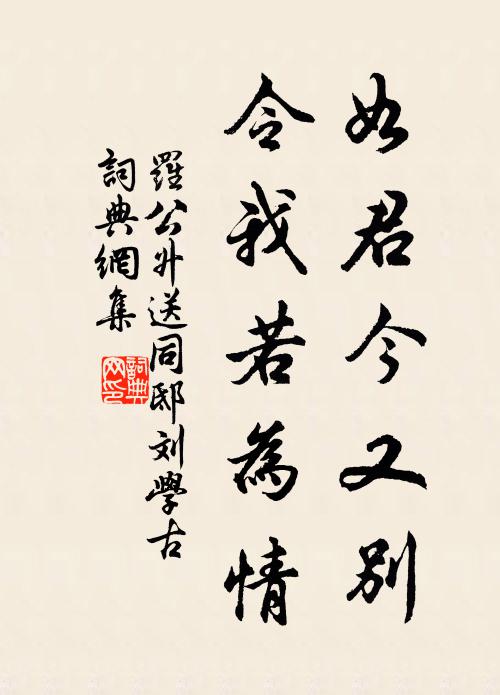 如君今又别
令我若為情
羅公升送同邸刘學古
詞典網集
詞典網印